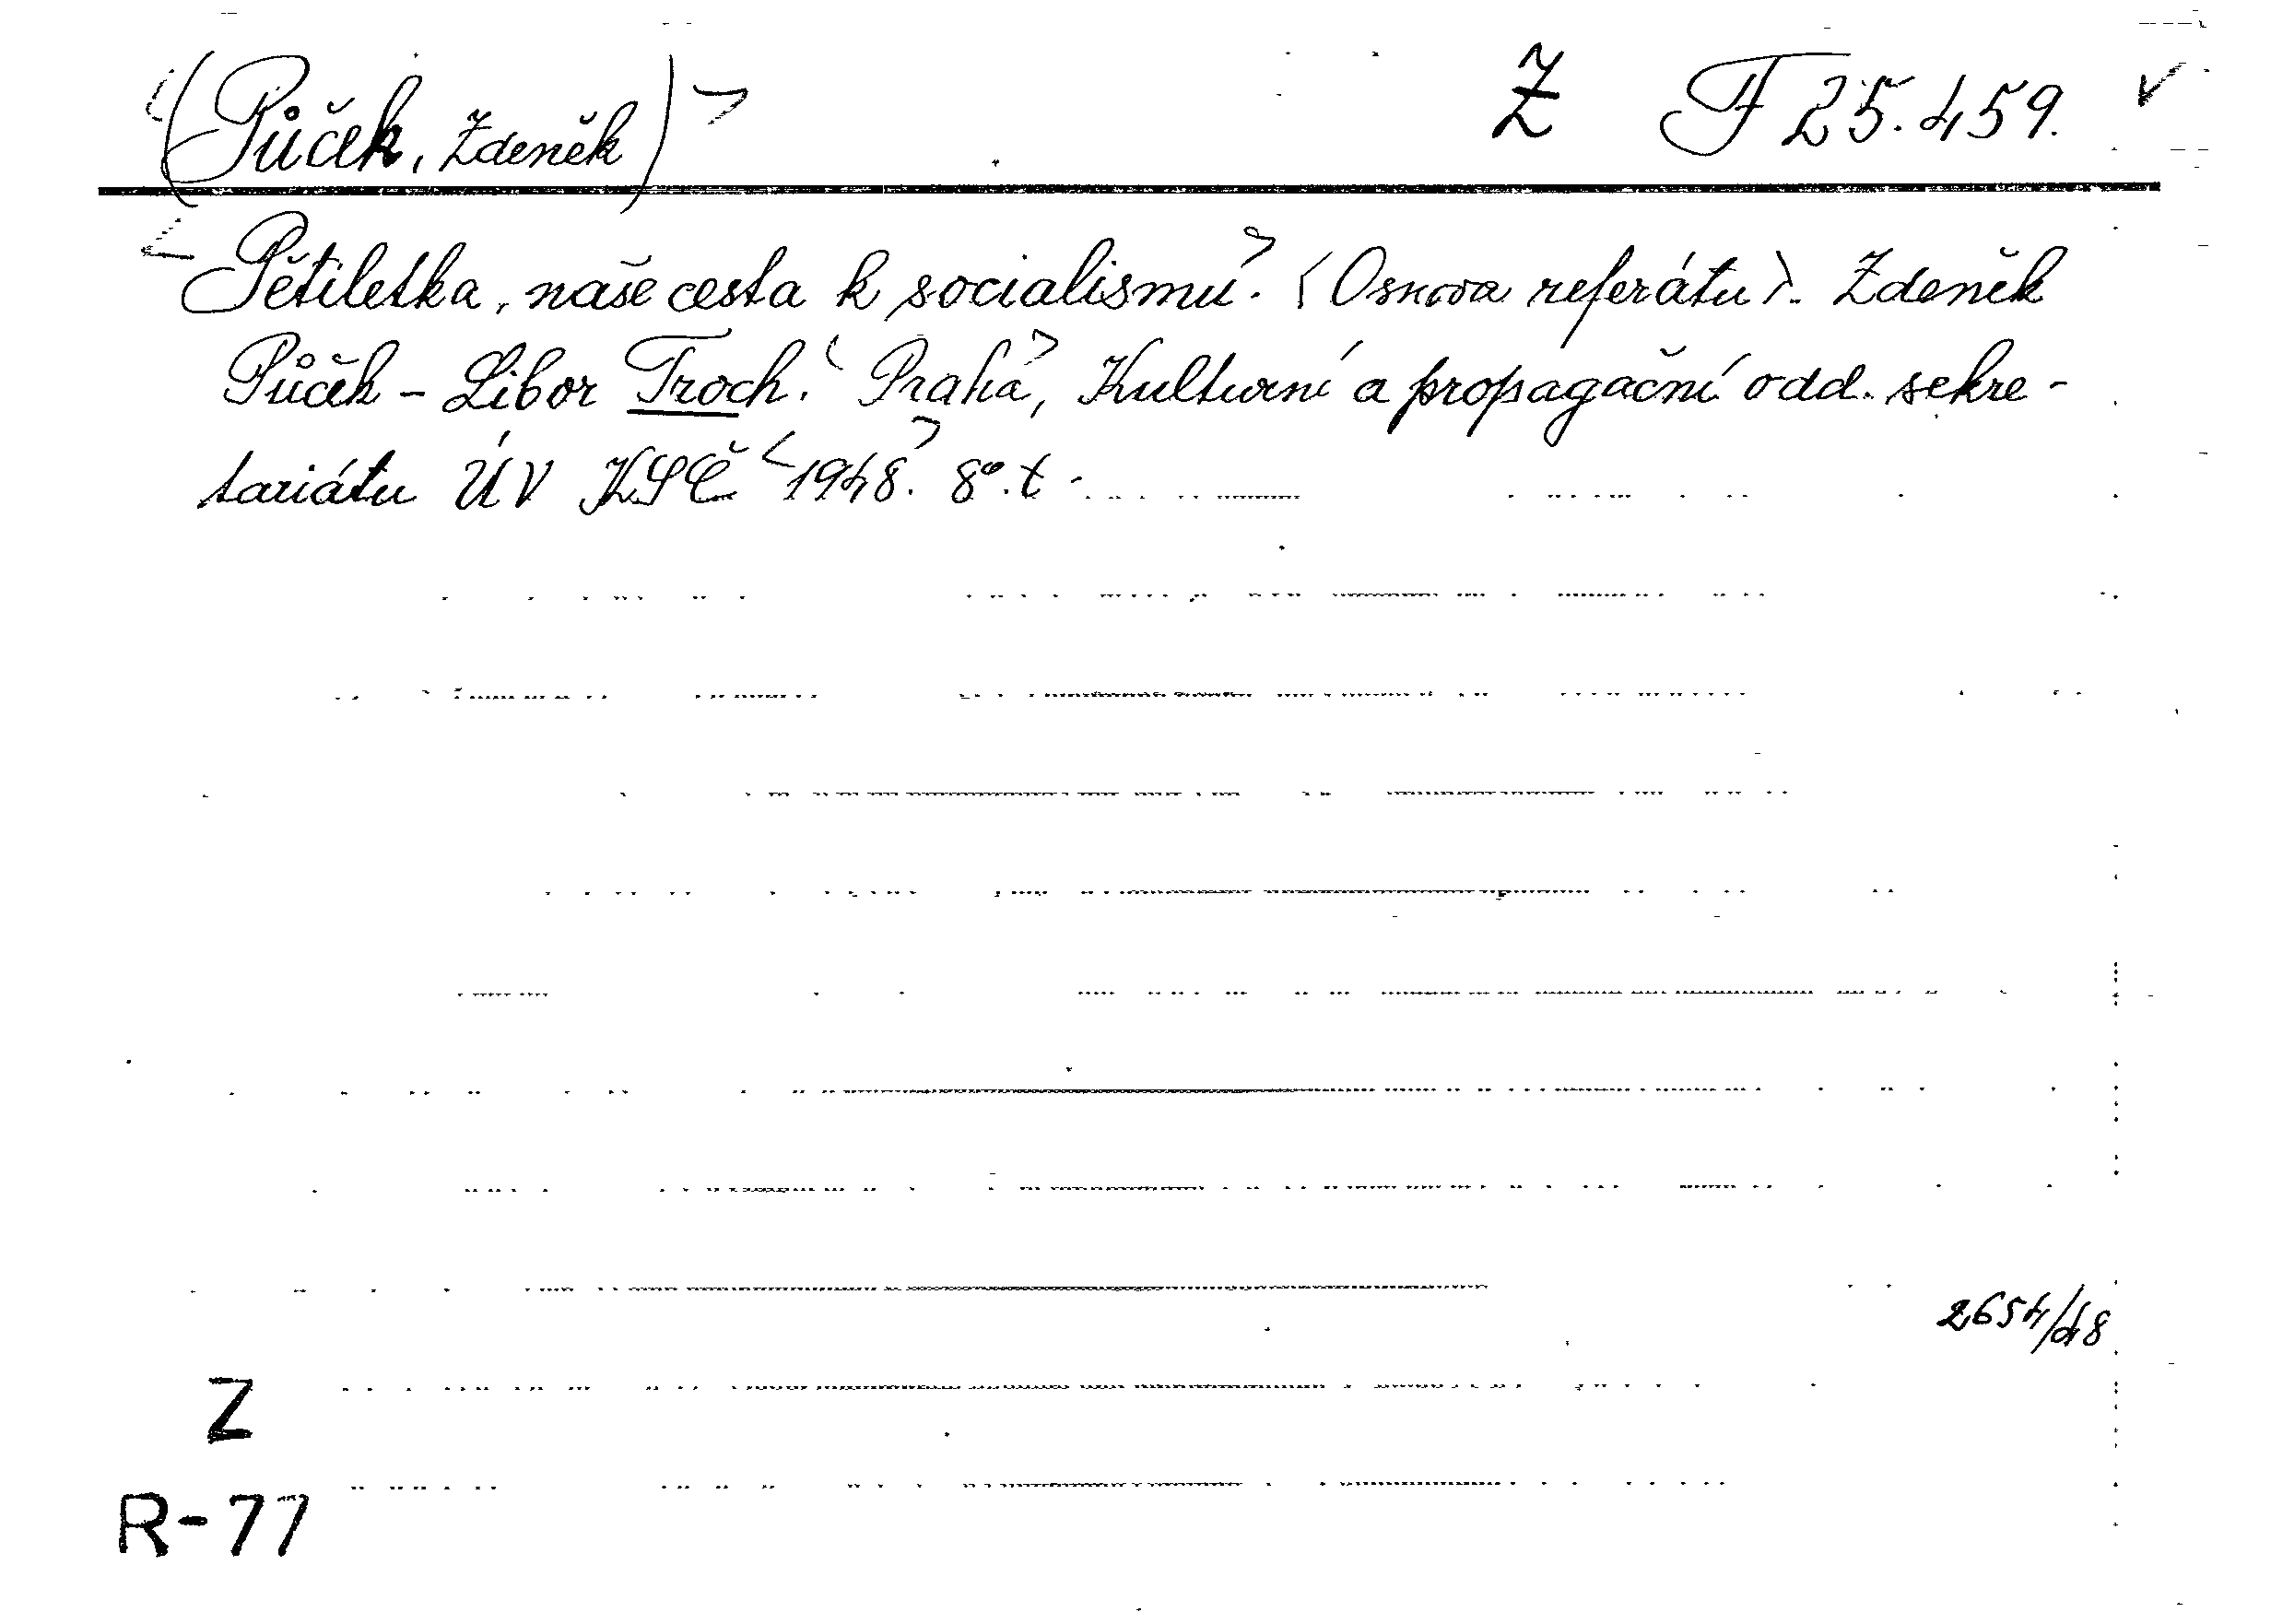 <(Půček, Zdeněk)> Z F 25.459. ✓
<Pětiletka, naše cesta k socialismu>. (Osnova referátu). Zdeněk
Půček - Libor Troch. <Praha>, Kulturní a propagační odd. sekre-
tariátu ÚV KSČ <1948>. 8°. t.
2654/48
Z
R-77